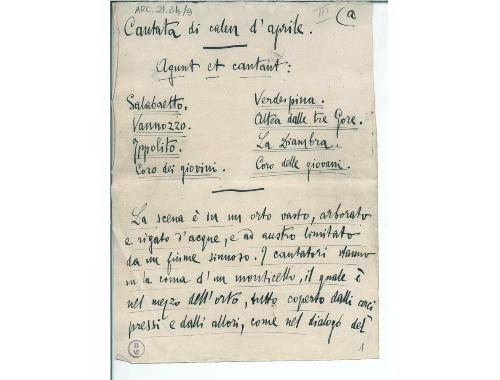 ARC. 21.34/9
III
(a
Cantata di calen d'aprile.
Agunt et cantant:
Salabaetto. Verdespina.
Vannozzo. Altea dalle tre Gore.
Ippolito. La Diambra.
Coro dei giovini. Coro delle giovani.
La scena è in un orto vasto, arborato
e rigato d'acque, e ad austro limitato
da un fiume sinuoso. I cantatori stanno
su la cima d'un monticello, il quale è
nel mezzo dell'orto, tutto coperto dalli arci
pressi e dalli allori, come nel dialogo del
1